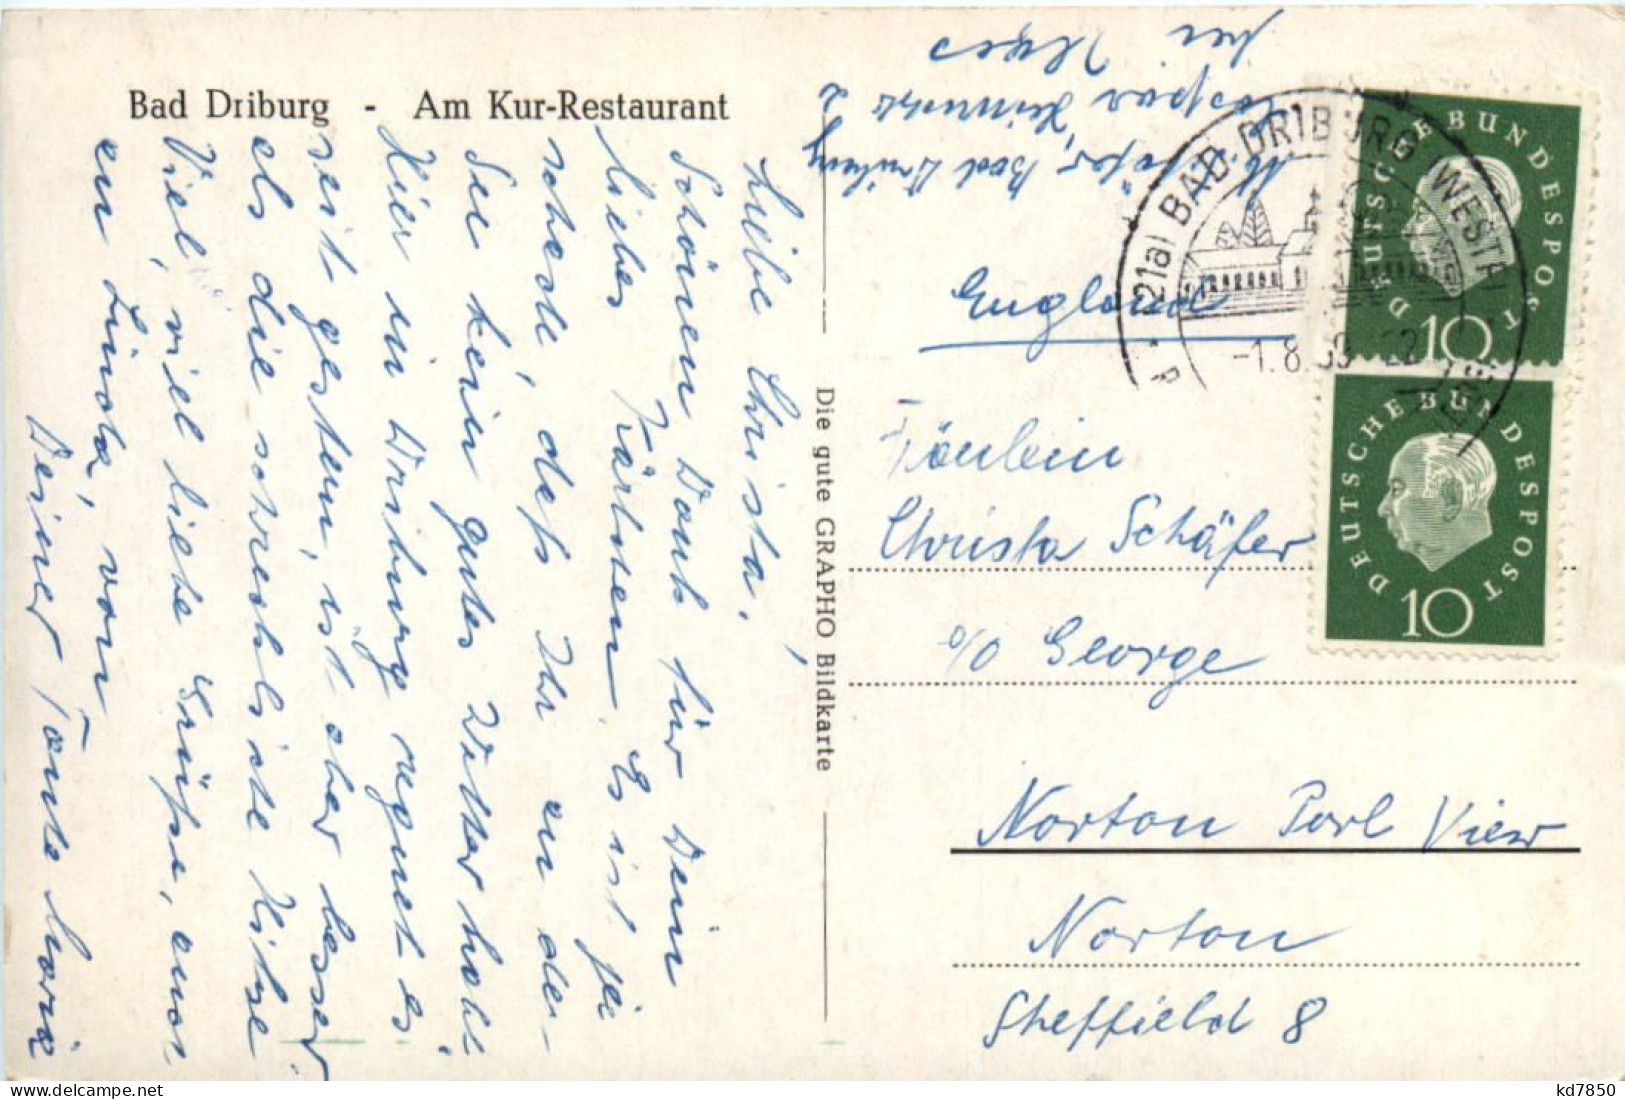 Bad Driburg - Am Kur-Restaurant
Liebe Christa,
Schönen Dank für Dein
liebes Kärtchen. Es ist je
schade, dass Ihr an der
See kein gutes Wetter habt.
Hier in Driburg regnet es
seit gestern, ist aber besser
als die schreckliche Hitze
Viel, viel liebe Grüße, auch
an Linda, von
Deiner Tante Maria
Die gute GRAPHO Bildkarte
M. Schäfer, Bad Driburg
bei
England
Fräulein
Christa Schäfer
c/o George
Norton Parl View
Norton
Sheffield 8
(21a) BAD DRIBURG (WESTF)
-1.8.59-22
DEUTSCHE BUNDESPOST
10
DEUTSCHE BUNDESPOST
10
delcampe.net
kd7850